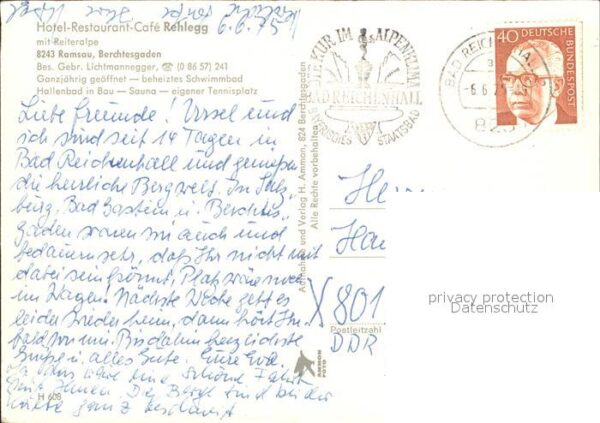 6.6.75
Hotel-Restaurant-Café Rehlegg
mit Reiteralpe
8243 Ramsau, Berchtesgaden
Bes. Gebr. Lichtmannegger, (0 86 57) 241
Ganzjährig geöffnet — beheiztes Schwimmbad
Hallenbad in Bau — Sauna — eigener Tennisplatz
Liebe Freunde! Ursel und
ich sind seit 14 Tagen in
Bad Reichenhall und genießen
die herrliche Bergwelt. In Salz-
burg, Bad Gastein u. Berchtes-
gaden waren wir auch und
bedauern sehr, daß Ihr nicht mit
dabei sein könnt, Platz wäre noch
im Wagen! Nächste Woche geht es
leider wieder heim, dann hört Ihr
bald von uns. Bis dahin herzlichste
Grüße u. alles Gute. Eure
Ja das wäre eine schöne Fahrt
mit Ihnen. Die Berge sind bei der
ganz
H 608
Aufnahme und Verlag H. Ammon, 824 Berchtesgaden
Alle Rechte vorbehalten
AMMON
FOTO
DIE KUR IM ALPENKLIMA
BAD REICHENHALL
BAYERISCHES STAATSBAD
BAD REICHENHALL
-6.6.75
823
40 DEUTSCHE
BUNDESPOST
X 801
Postleitzahl
DDR
privacy protection
Datenschutz